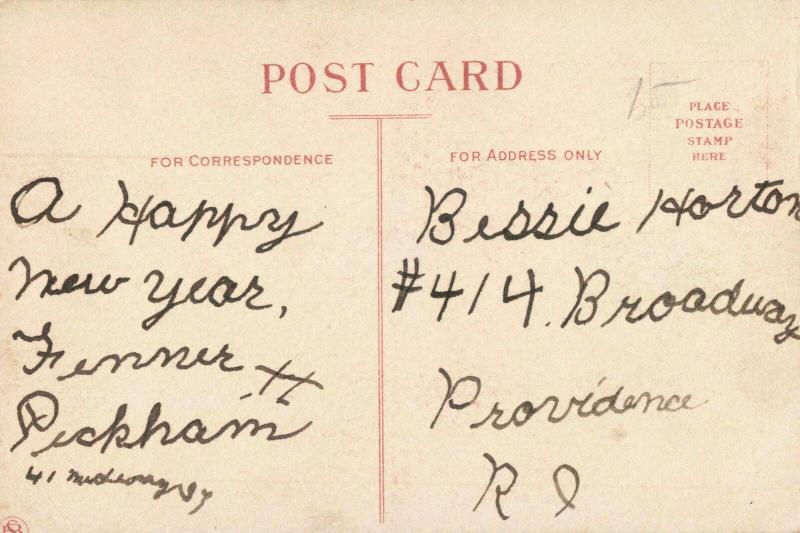 POST CARD
PLACE
POSTAGE
STAMP
HERE
FOR CORRESPONDENCE
FOR ADDRESS ONLY
A Happy
New Year,
Fenner H
Peckham
41
Bessie Horton
#414. Broadway
Providence
R I